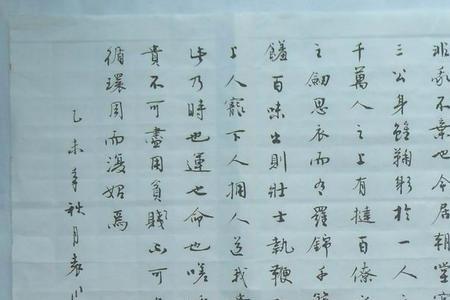 非我不棄也今居朝堂
三公身雖鞠躬於一人之
千萬人之上有撻百僚之
之劍思衣而有羅錦千箱
饈百味出則壯士執鞭
上人寵下人擁人道我
此乃時也運也命也嗟
貴不可盡用貧賤不可
循環周而復始焉
乙未年秋月袁